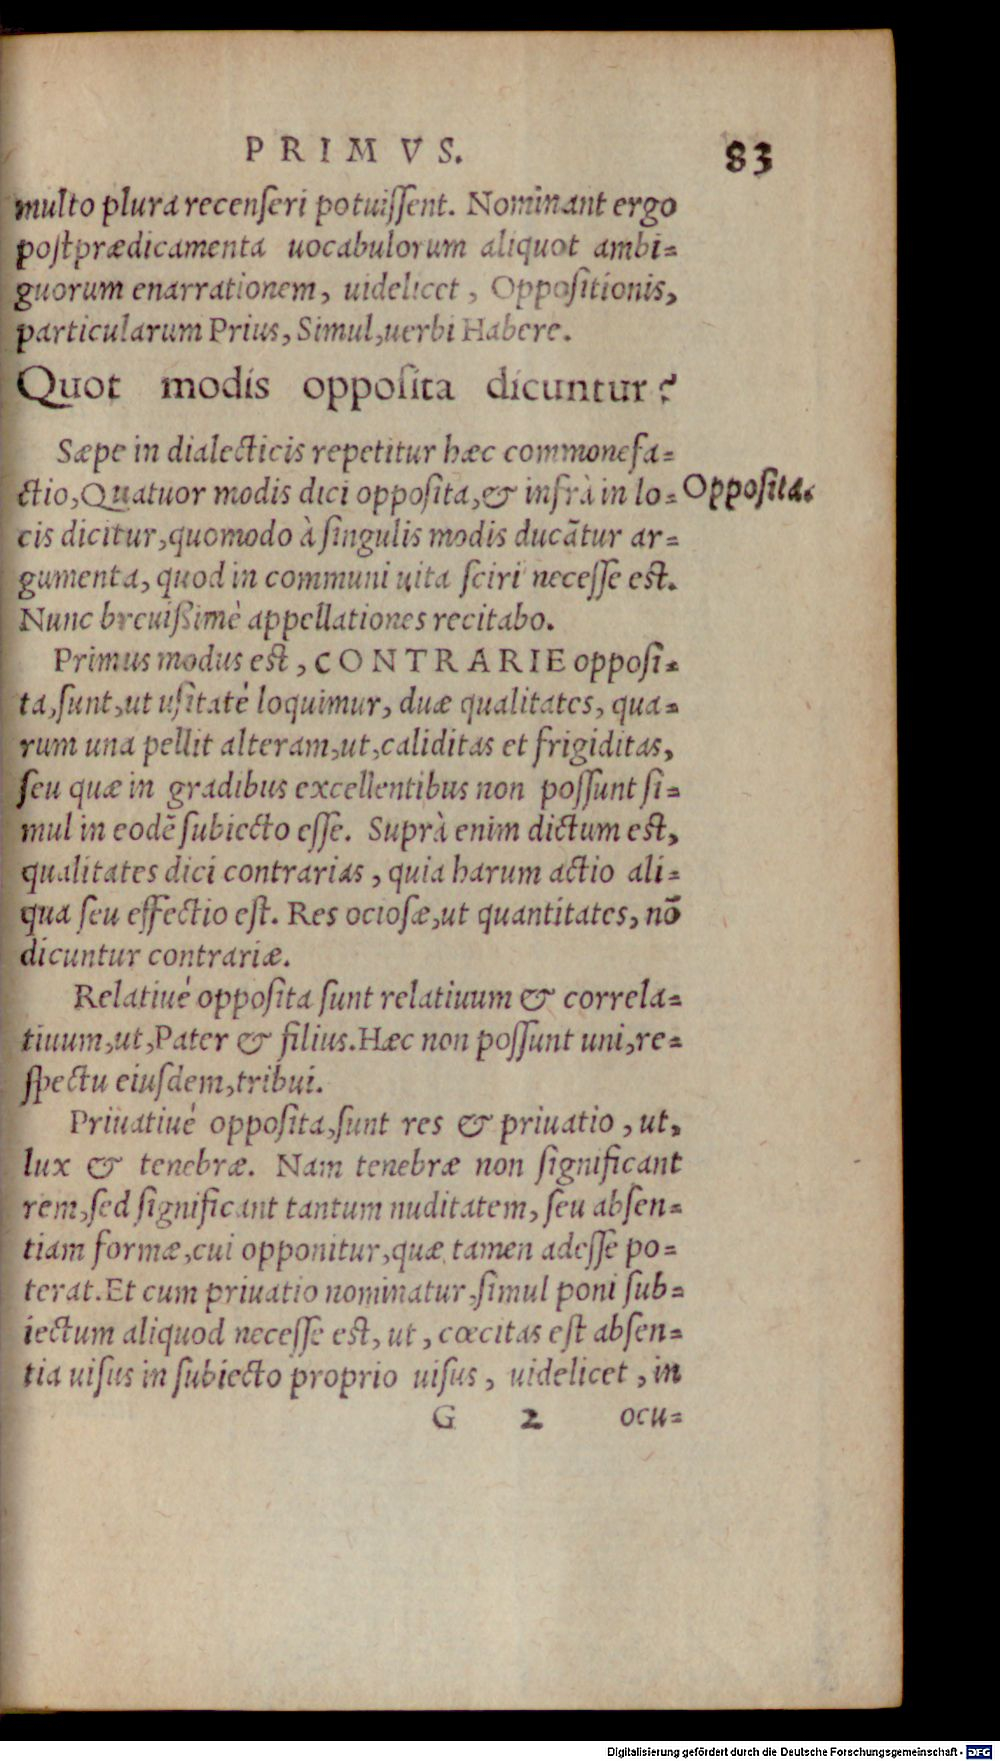 PRIMVS.
83
multo plura recenſeri potuiſſent. Nominant ergo
poſtprædicamenta uocabulorum aliquot ambi=
guorum enarrationem, uidelicet, Oppoſitionis,
particularum Prius, Simul, uerbi Habere.
Quot modis oppoſita dicuntur?
Sæpe in dialecticis repetitur hæc commonefa=
ctio, Quatuor modis dici oppoſita, & infrà in lo=
Oppoſita.
cis dicitur, quomodo à ſingulis modis ducãtur ar=
gumenta, quod in communi uita ſciri neceſſe eſt.
Nunc breuißimè appellationes recitabo.
Primus modus est, CONTRARIE oppoſi=
ta, ſunt, ut uſitaté loquimur, duæ qualitates, qua=
rum una pellit alteram, ut, caliditas et frigiditas,
ſeu quæ in gradibus excellentibus non poſſunt ſi=
mul in eodẽ ſubiecto eſſe. Suprà enim dictum est,
qualitates dici contrarias, quia harum actio ali=
qua ſeu effectio eſt. Res ocioſæ, ut quantitates, nõ
dicuntur contrariæ.
Relatiué oppoſita ſunt relatiuum & correla=
tiuum, ut, Pater & filius. Hæc non poſſunt uni, re=
ſpectu eiuſdem, tribui.
Priuatiué oppoſita, ſunt res & priuatio, ut,
lux & tenebræ. Nam tenebræ non ſignificant
rem, ſed ſignificant tantum nuditatem, ſeu abſen=
tiam formæ, cui opponitur, quæ tamen adeſſe po=
terat. Et cum priuatio nominatur, ſimul poni ſub=
iectum aliquod neceſſe est, ut, cœcitas eſt abſen=
tia uiſus in ſubiecto proprio uiſus, uidelicet, in
G 2 ocu=
Digitalisierung gefördert durch die Deutsche Forschungsgemeinschaft - DFG